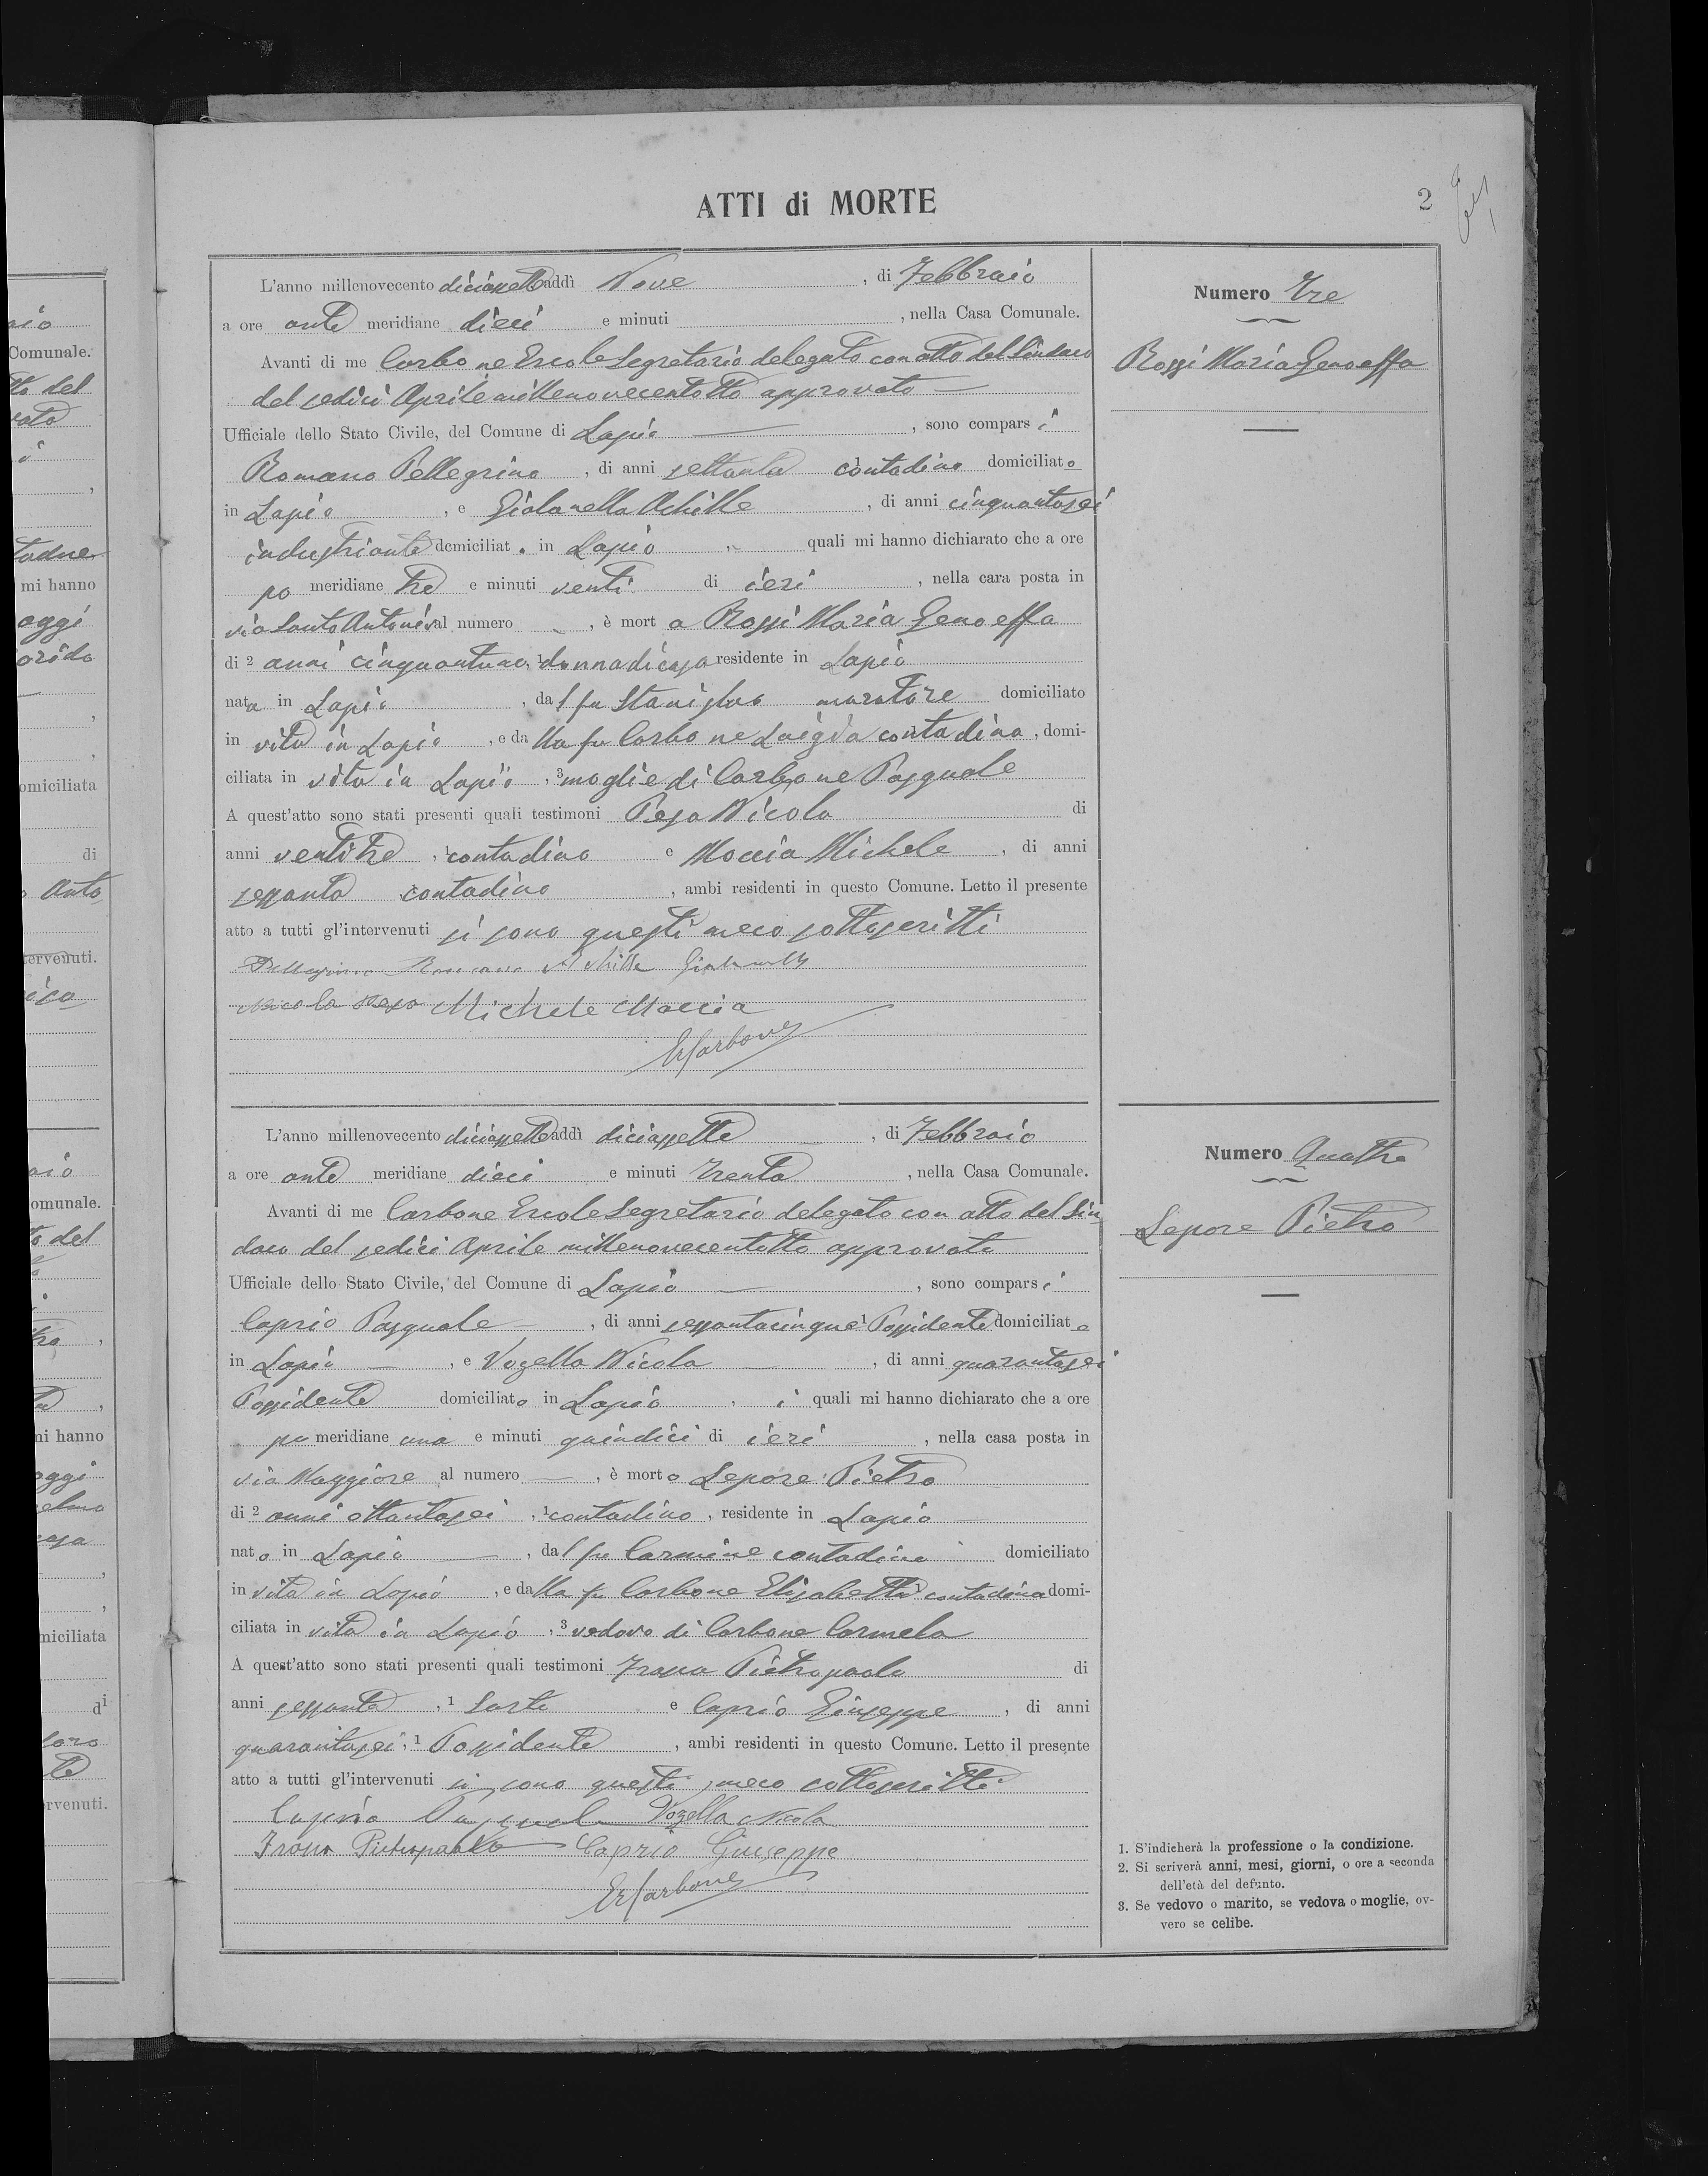 ATTI di MORTE
2
L'anno millenovecento diciassette addì Nove, di Febbraio
a ore ante meridiane dieci e minuti, nella Casa Comunale.
Avanti di me Carbone Ercole Segretario delegato con atto del Sindaco
del sedici Aprile millenovecentotto approvato —
Ufficiale dello Stato Civile, del Comune di Lapio —, sono comparsi
Romano Pellegrino, di anni settanta contadino domiciliato
in Lapio, e Giolanella Achille, di anni cinquantasei
industriante domiciliato in Lapio quali mi hanno dichiarato che a ore
po meridiane tre e minuti venti di ieri, nella cara posta in
via Santo Antonio al numero —, è morta Rossi Maria Genoeffa
di 2 anni cinquantuno, 1 donna di casa residente in Lapio
nata in Lapio, dal fu Stanislao muratore domiciliato
in vita in Lapio, e dalla fu Carbone Luigia contadina, domi-
ciliata in vita in Lapio, 3 moglie di Carbone Pasquale
A quest'atto sono stati presenti quali testimoni Pesa Nicola di
anni ventitre, 1 contadino e Moccia Michele, di anni
sessanta contadino, ambi residenti in questo Comune. Letto il presente
atto a tutti gl'intervenuti si sono questi meco sottoscritti
Pellegrino Romano Achille Giolanella
Nicola Pesa Michele Moccia
ErCarbone
Numero Tre
Rossi Maria Genoeffa
L'anno millenovecento diciassette addì diciassette —, di Febbraio
a ore ante meridiane dieci e minuti trenta, nella Casa Comunale.
Avanti di me Carbone Ercole Segretario delegato con atto del Sin
daco del sedici Aprile millenovecentotto approvato
Ufficiale dello Stato Civile, del Comune di Lapio —, sono comparsi
Caprio Pasquale —, di anni sessantacinque 1 Possidente domiciliato
in Lapio —, e Vozella Nicola, di anni quarantasei
Possidente domiciliato in Lapio, i quali mi hanno dichiarato che a ore
po meridiane una e minuti quindici di ieri, nella casa posta in
via Maggiore al numero —, è morto Lepore Pietro
di 2 anni ottantasei, 1 contadino, residente in Lapio —
nato in Lapio —, dal fu Carmine contadino domiciliato
in vita in Lapio, e dalla fu Carbone Elisabetta contadina domi-
ciliata in vita in Lapio, 3 vedovo di Carbone Carmela
A quest'atto sono stati presenti quali testimoni Pietropaolo di
anni sessanta, 1 Sarto e Caprio Giuseppe, di anni
quarantasei, 1 Possidente, ambi residenti in questo Comune. Letto il presente
atto a tutti gl'intervenuti si sono questi meco sottoscritti
Caprio Pasquale Vozella Nicola
Pietropaolo Caprio Giuseppe
ErCarbone
Numero Quattro
Lepore Pietro
1. S'indicherà la professione o la condizione.
2. Si scriverà anni, mesi, giorni, o ore a seconda
dell'età del defunto.
3. Se vedovo o marito, se vedova o moglie, ov-
vero se celibe.